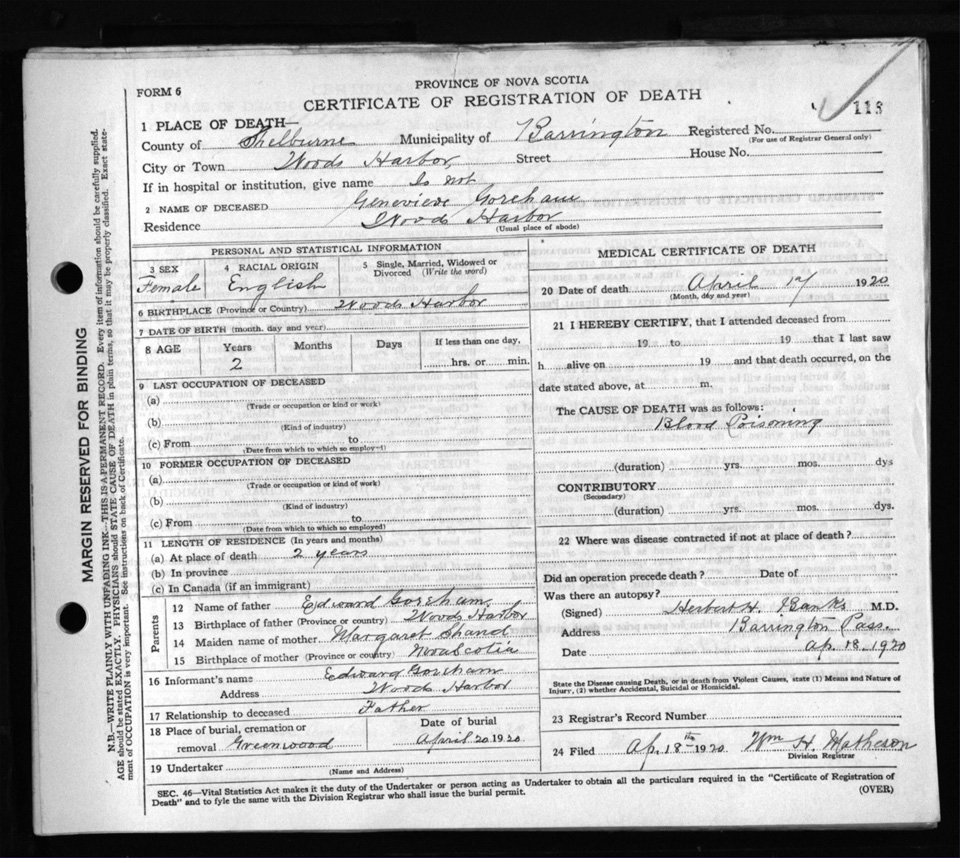 PROVINCE OF NOVA SCOTIA
FORM 6
CERTIFICATE OF REGISTRATION OF DEATH
113
1 PLACE OF DEATH—
County of Shelburne Municipality of Barrington Registered No.
(For use of Registrar General only)
City or Town Woods Harbor, Street House No.
If in hospital or institution, give name Is not
2 NAME OF DECEASED Genevieve Goreham
Residence Woods Harbor
(Usual place of abode)
PERSONAL AND STATISTICAL INFORMATION
3 SEX 4 RACIAL ORIGIN 5 Single, Married, Widowed or Divorced (Write the word)
Female English
6 BIRTHPLACE (Province or Country) Woods Harbor
7 DATE OF BIRTH (month, day and year)
8 AGE Years Months Days If less than one day,
2 hrs. or min.
9 LAST OCCUPATION OF DECEASED
(a)
(Trade or occupation or kind or work)
(b)
(Kind of industry)
(c) From to
(Date from which to which so employed)
10 FORMER OCCUPATION OF DECEASED
(a)
(Trade or occupation or kind of work)
(b)
(Kind of industry)
(c) From to
(Date from which to which so employed)
11 LENGTH OF RESIDENCE (In years and months)
(a) At place of death 2 years
(b) In province
(c) In Canada (if an immigrant)
Parents
12 Name of father Edward Goreham,
13 Birthplace of father (Province or country) Woods Harbor
14 Maiden name of mother Margaret Shand
15 Birthplace of mother (Province or country) Nova Scotia
16 Informant's name Edward Goreham
Address Woods Harbor
17 Relationship to deceased Father
18 Place of burial, cremation or Date of burial
removal Greenwood April 20 1920.
19 Undertaker
(Name and Address)
MEDICAL CERTIFICATE OF DEATH
20 Date of death April 17 1920
(Month, day and year)
21 I HEREBY CERTIFY, that I attended deceased from
19 to 19 that I last saw
h alive on 19 and that death occurred, on the
date stated above, at m.
The CAUSE OF DEATH was as follows:
Blood Poisoning
(duration) yrs. mos. dys
CONTRIBUTORY
(Secondary)
(duration) yrs. mos. dys.
22 Where was disease contracted if not at place of death?
Did an operation precede death? Date of
Was there an autopsy?
(Signed) Herbert H. Banks M.D.
Address Barrington Pass.
Date Ap. 18. 1920
State the Disease causing Death, or in death from Violent Causes, state (1) Means and Nature of
Injury, (2) whether Accidental, Suicidal or Homicidal.
23 Registrar's Record Number
24 Filed Ap. 18th 1920. Wm H. Matheson
Division Registrar
SEC. 46—Vital Statistics Act makes it the duty of the Undertaker or person acting as Undertaker to obtain all the particulars required in the "Certificate of Registration of
Death" and to fyle the same with the Division Registrar who shall issue the burial permit.
(OVER)
MARGIN RESERVED FOR BINDING
N.B.—WRITE PLAINLY WITH UNFADING INK—THIS IS A PERMANENT RECORD. Every item of information should be carefully supplied.
AGE should be stated EXACTLY. PHYSICIANS should STATE CAUSE OF DEATH in plain terms, so that it may be properly classified. Exact state-
ment of OCCUPATION is very important. See instructions on back of Certificate.